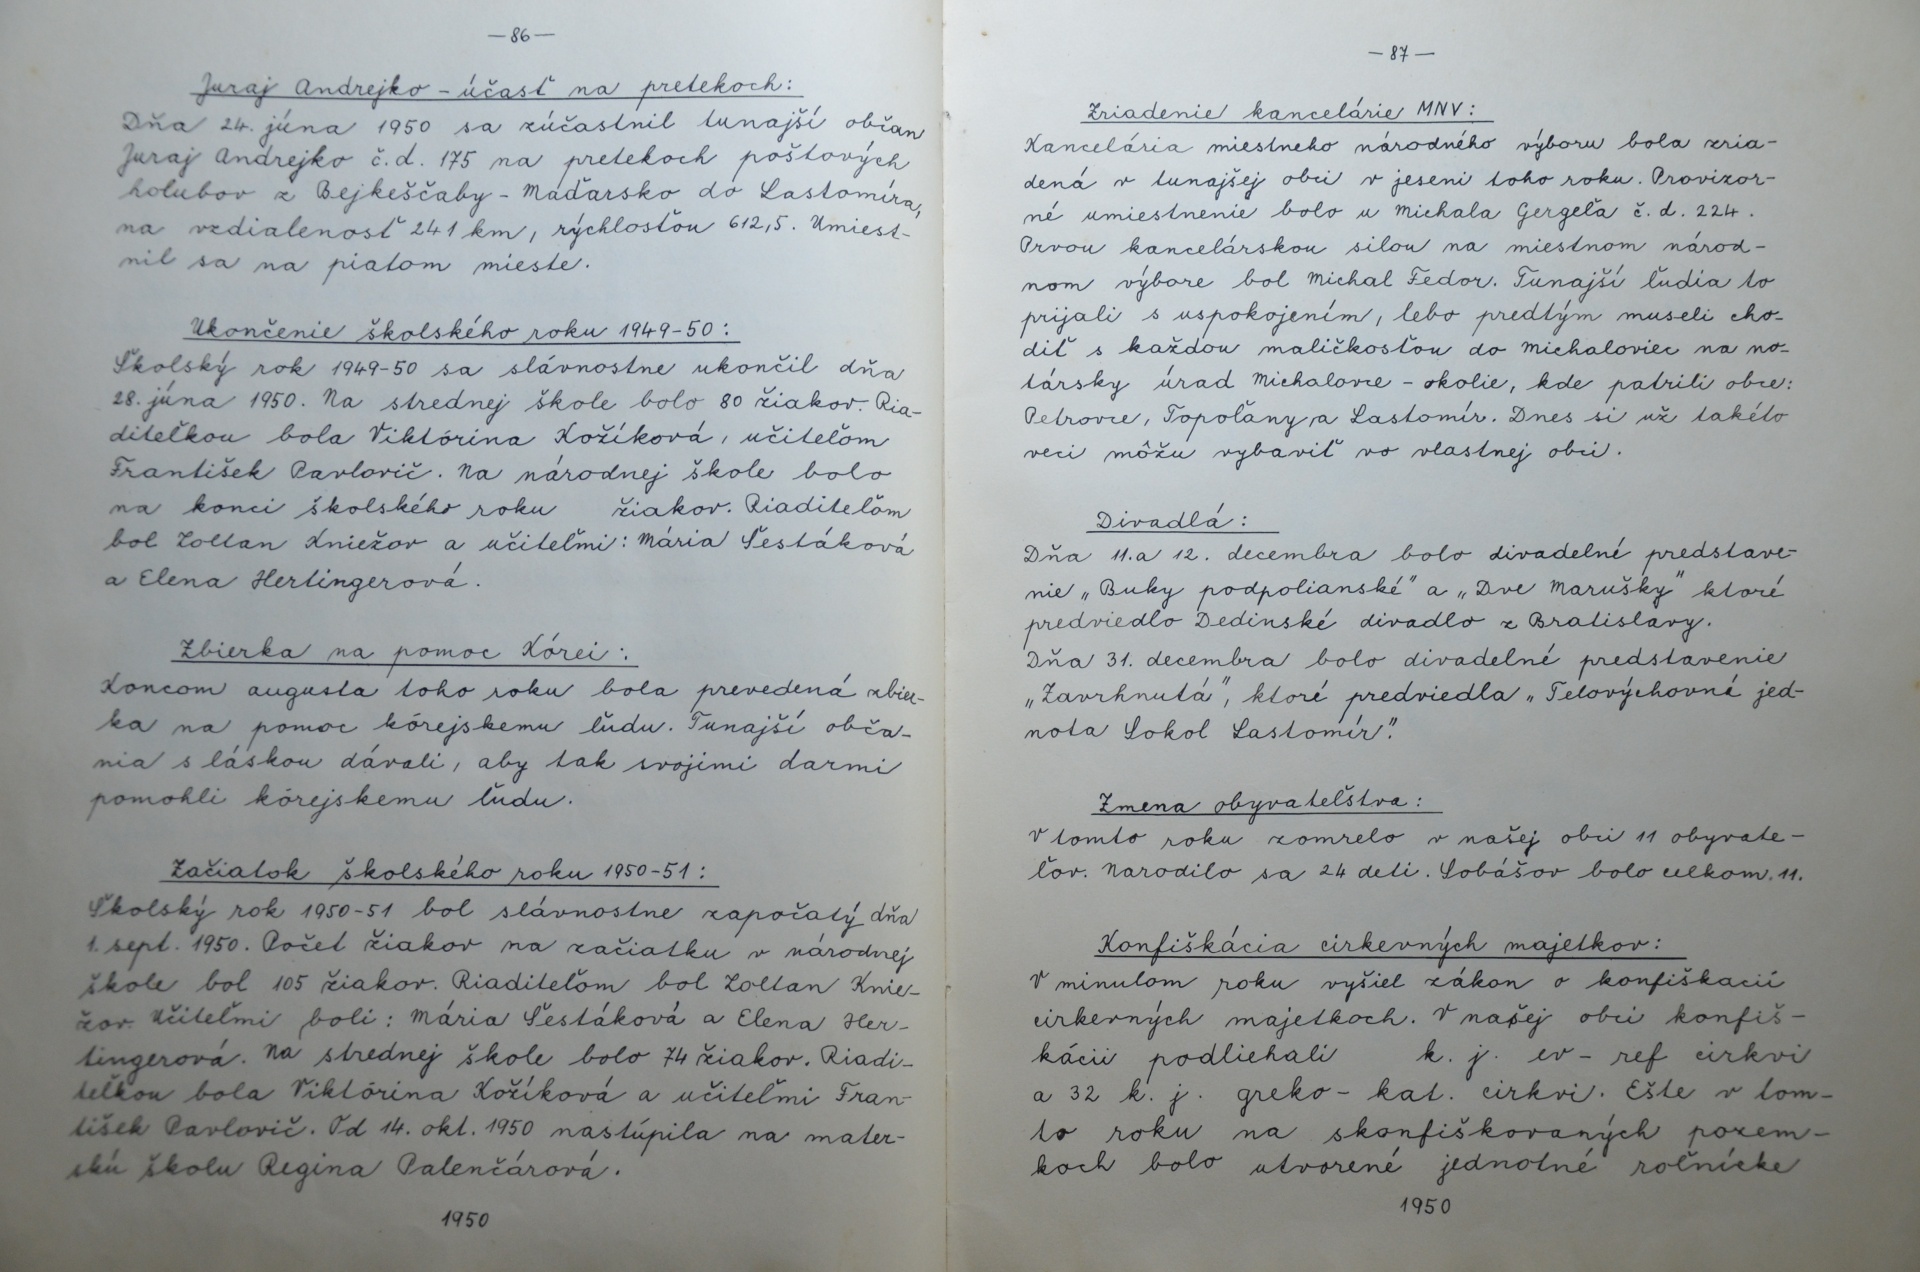 —86—
Juraj Andrejko – účasť na pretekoch:
Dňa 24. júna 1950 sa zúčastnil tunajší občan
Juraj Andrejko č.d. 175 na pretekoch poštových
holubov z Bejkeščaby – Maďarsko do Lastomíra,
na vzdialenosť 241 km, rýchlosťou 612,5. Umiest-
nil sa na piatom mieste.
Ukončenie školského roku 1949-50:
Školský rok 1949-50 sa slávnostne ukončil dňa
28. júna 1950. Na strednej škole bolo 80 žiakov. Ria-
diteľkou bola Viktórina Kožíková, učiteľom
František Pavlovič. Na národnej škole bolo
na konci školského roku žiakov. Riaditeľom
bol Zoltan Kniežov a učiteľmi: Mária Šestáková
a Elena Hertingerová.
Zbierka na pomoc Kórei:
Koncom augusta toho roku bola prevedená zbier-
ka na pomoc kórejskemu ľudu. Tunajší obča-
nia s láskou dávali, aby tak svojimi darmi
pomohli kórejskemu ľudu.
Začiatok školského roku 1950-51:
Školský rok 1950-51 bol slávnostne započatý dňa
1. sept. 1950. Počet žiakov na začiatku v národnej
škole bol 105 žiakov. Riaditeľom bol Zoltan Knie-
žov. Učiteľmi boli: Mária Šestáková a Elena Her-
tingerová. Na strednej škole bolo 74 žiakov. Riadi-
teľkou bola Viktórina Kožíková a učiteľmi Fran-
tišek Pavlovič. Od 14. okt. 1950 nastúpila na mater-
skú školu Regina Palenčárová.
1950
—87—
Zriadenie kancelárie MNV:
Kancelária miestneho národného výboru bola zria-
dená v tunajšej obci v jeseni toho roku. Provizor-
né umiestnenie bolo u Michala Gergeľa č. d. 224.
Prvou kancelárskou silou na miestnom národ-
nom výbore bol Michal Fedor. Tunajší ľudia to
prijali s uspokojením, lebo predtým museli cho-
diť s každou maličkosťou do Michaloviec na no-
társky úrad Michalovce – okolie, kde patrili obce:
Petrovce, Topoľany, a Lastomír. Dnes si už takéto
veci môžu vybaviť vo vlastnej obci.
Divadlá:
Dňa 11. a 12. decembra bolo divadelné predstave-
nie „Buky podpolianské" a „Dve Marušky" ktoré
predviedlo Dedinské divadlo z Bratislavy.
Dňa 31. decembra bolo divadelné predstavenie
„Zavrhnutá", ktoré predviedla „Telovýchovné jed-
nota Sokol Lastomír".
Zmena obyvateľstva:
V tomto roku zomrelo v našej obci 11 obyvate-
ľov. Narodilo sa 24 deti. Sobášov bolo celkom 11.
Konfiškácia cirkevných majetkov:
V minulom roku vyšiel zákon o konfiškacii
cirkevných majetkoch. V našej obci konfiš-
kácii podliehali k. j. ev – ref cirkvi
a 32 k. j. greko – kat. cirkvi. Ešte v tom-
to roku na skonfiškovaných pozem-
koch bolo utvorené jednotné roľnícke
1950